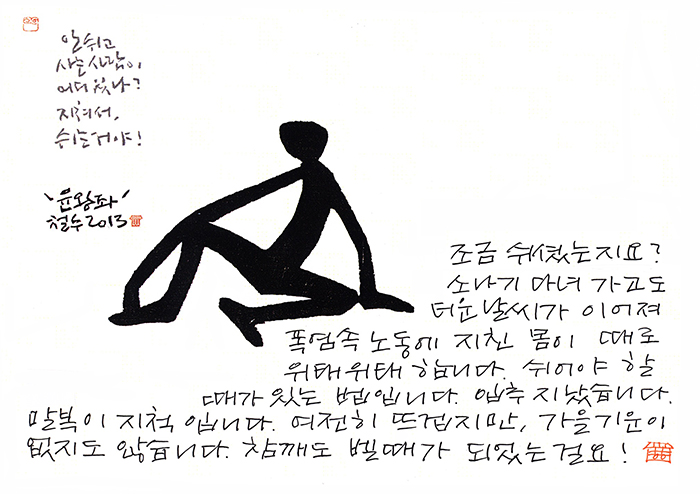 안 쉬고
사는 사람이
어디 있나?
지쳐서,
쉬는거야!
'윤왕좌'
철수 2013
조금 쉬셨는지요?
소나기 다녀 가고도
더운 날씨가 이어져
폭염속 노동에 지친 몸이 때로
위태위태 합니다. 쉬어야 할
때가 있는 법입니다. 입추 지났습니다.
말복이 지척 입니다. 여전히 뜨겁지만, 가을기운이
없지도 않습니다. 참깨도 벨때가 되었는걸요!